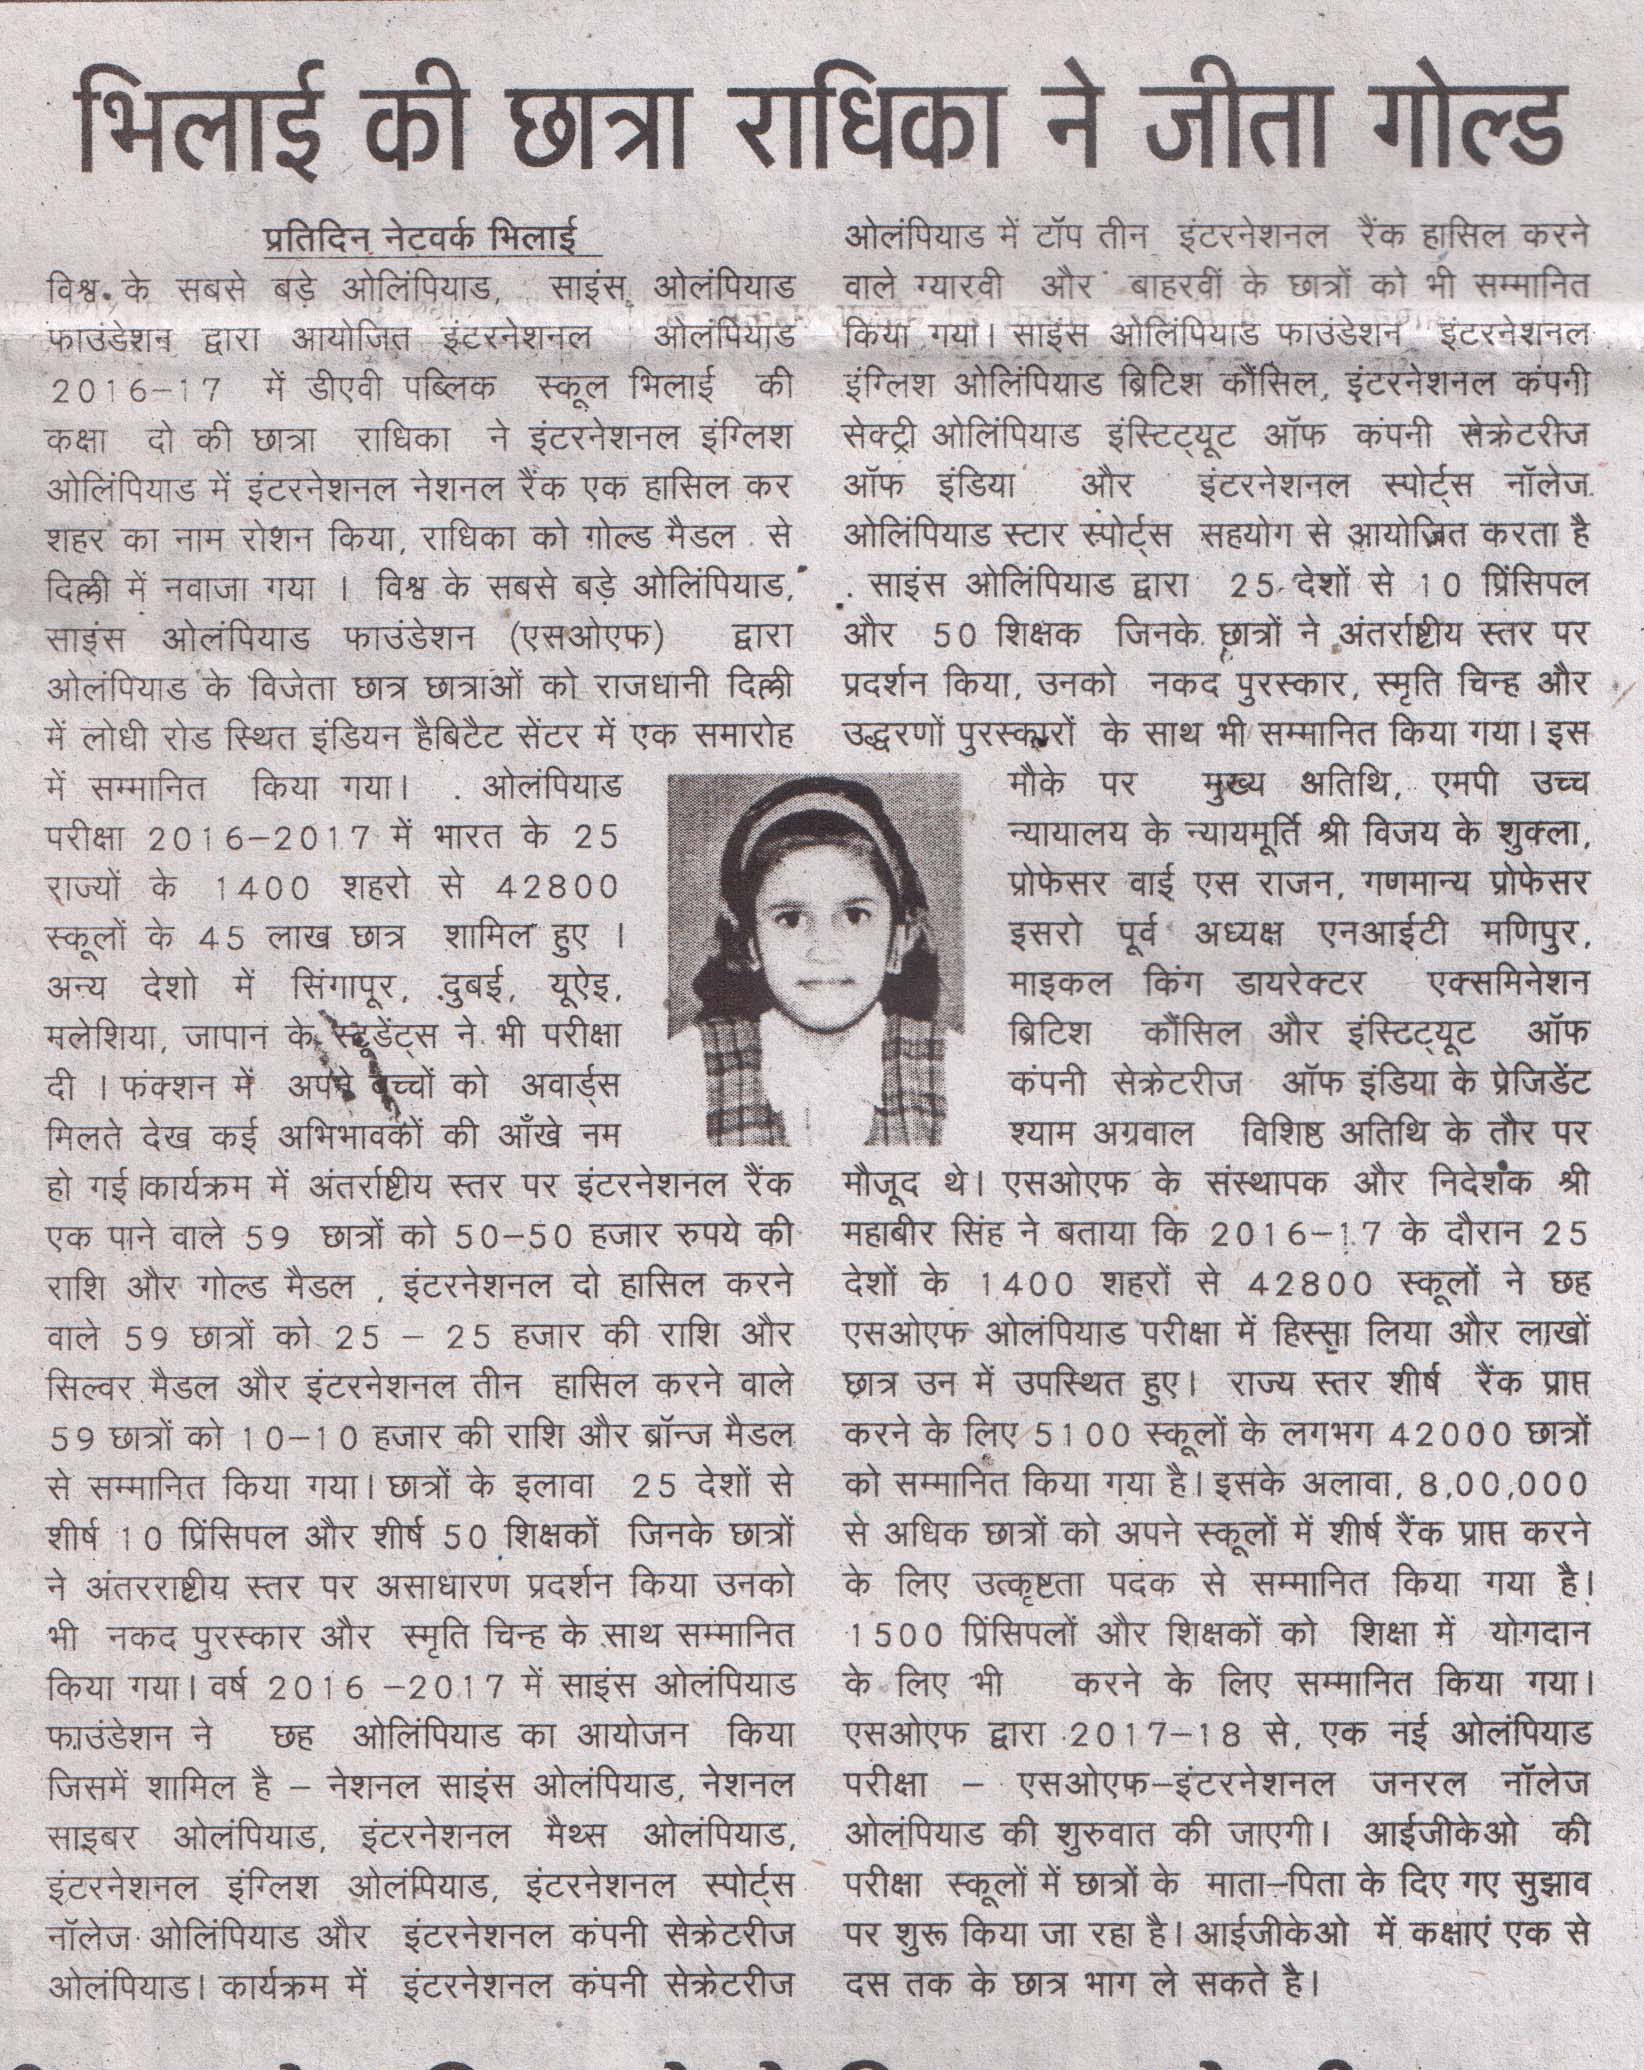 भिलाई की छात्रा राधिका ने जीता गोल्ड
प्रतिदिन नेटवर्क भिलाई
विश्व के सबसे बड़े ओलिंपियाड, साइंस ओलंपियाड
फाउंडेशन द्वारा आयोजित इंटरनेशनल ओलंपियाड
2016-17 में डीएवी पब्लिक स्कूल भिलाई की
कक्षा दो की छात्रा राधिका ने इंटरनेशनल इंग्लिश
ओलिंपियाड में इंटरनेशनल नेशनल रैंक एक हासिल कर
शहर का नाम रोशन किया, राधिका को गोल्ड मैडल से
दिल्ली में नवाजा गया । विश्व के सबसे बड़े ओलिंपियाड,
साइंस ओलंपियाड फाउंडेशन (एसओएफ) द्वारा
ओलंपियाड के विजेता छात्र छात्राओं को राजधानी दिल्ली
में लोधी रोड स्थित इंडियन हैबिटैट सेंटर में एक समारोह
में सम्मानित किया गया। . ओलंपियाड
परीक्षा 2016-2017 में भारत के 25
राज्यों के 1400 शहरो से 42800
स्कूलों के 45 लाख छात्र शामिल हुए ।
अन्य देशो में सिंगापूर, दुबई, यूऐइ,
मलेशिया, जापान के स्टूडेंट्स ने भी परीक्षा
दी । फंक्शन में अपने बच्चों को अवार्ड्स
मिलते देख कई अभिभावकों की आँखे नम
हो गई।कार्यक्रम में अंतर्राष्टीय स्तर पर इंटरनेशनल रैंक
एक पाने वाले 59 छात्रों को 50-50 हजार रुपये की
राशि और गोल्ड मैडल , इंटरनेशनल दो हासिल करने
वाले 59 छात्रों को 25 - 25 हजार की राशि और
सिल्वर मैडल और इंटरनेशनल तीन हासिल करने वाले
59 छात्रों को 10-10 हजार की राशि और ब्रॉन्ज मैडल
से सम्मानित किया गया। छात्रों के इलावा 25 देशों से
शीर्ष 10 प्रिंसिपल और शीर्ष 50 शिक्षकों जिनके छात्रों
ने अंतरराष्टीय स्तर पर असाधारण प्रदर्शन किया उनको
भी नकद पुरस्कार और स्मृति चिन्ह के साथ सम्मानित
किया गया। वर्ष 2016 -2017 में साइंस ओलंपियाड
फाउंडेशन ने छह ओलिंपियाड का आयोजन किया
जिसमें शामिल है - नेशनल साइंस ओलंपियाड, नेशनल
साइबर ओलंपियाड, इंटरनेशनल मैथ्स ओलंपियाड,
इंटरनेशनल इंग्लिश ओलंपियाड, इंटरनेशनल स्पोर्ट्स
नॉलेज ओलिंपियाड और इंटरनेशनल कंपनी सेक्रेटरीज
ओलंपियाड। कार्यक्रम में इंटरनेशनल कंपनी सेक्रेटरीज
ओलंपियाड में टॉप तीन इंटरनेशनल रैंक हासिल करने
वाले ग्यारवी और बाहरवीं के छात्रों को भी सम्मानित
किया गया। साइंस ओलिंपियाड फाउंडेशन इंटरनेशनल
इंग्लिश ओलिंपियाड ब्रिटिश कौंसिल, इंटरनेशनल कंपनी
सेक्ट्री ओलिंपियाड इंस्टिट्यूट ऑफ कंपनी सेक्रेटरीज
ऑफ इंडिया और इंटरनेशनल स्पोर्ट्स नॉलेज
ओलिंपियाड स्टार स्पोर्ट्स सहयोग से आयोजित करता है
. साइंस ओलिंपियाड द्वारा 25 देशों से 10 प्रिंसिपल
और 50 शिक्षक जिनके छात्रों ने अंतर्राष्टीय स्तर पर
प्रदर्शन किया, उनको नकद पुरस्कार, स्मृति चिन्ह और
उद्धरणों पुरस्कारों के साथ भी सम्मानित किया गया। इस
मौके पर मुख्य अतिथि, एमपी उच्च
न्यायालय के न्यायमूर्ति श्री विजय के शुक्ला,
प्रोफेसर वाई एस राजन, गणमान्य प्रोफेसर
इसरो पूर्व अध्यक्ष एनआईटी मणिपुर,
माइकल किंग डायरेक्टर एक्समिनेशन
ब्रिटिश कौंसिल और इंस्टिट्यूट ऑफ
कंपनी सेक्रेटरीज ऑफ इंडिया के प्रेजिडेंट
श्याम अग्रवाल विशिष्ठ अतिथि के तौर पर
मौजूद थे। एसओएफ के संस्थापक और निदेशक श्री
महाबीर सिंह ने बताया कि 2016-17 के दौरान 25
देशों के 1400 शहरों से 42800 स्कूलों ने छह
एसओएफ ओलंपियाड परीक्षा में हिस्सा लिया और लाखों
छात्र उन में उपस्थित हुए। राज्य स्तर शीर्ष रैंक प्राप्त
करने के लिए 5100 स्कूलों के लगभग 42000 छात्रों
को सम्मानित किया गया है। इसके अलावा, 8,00,000
से अधिक छात्रों को अपने स्कूलों में शीर्ष रैंक प्राप्त करने
के लिए उत्कृष्टता पदक से सम्मानित किया गया है।
1500 प्रिंसिपलों और शिक्षकों को शिक्षा में योगदान
के लिए भी करने के लिए सम्मानित किया गया।
एसओएफ द्वारा 2017-18 से, एक नई ओलंपियाड
परीक्षा - एसओएफ-इंटरनेशनल जनरल नॉलेज
ओलंपियाड की शुरुवात की जाएगी। आईजीकेओ की
परीक्षा स्कूलों में छात्रों के माता-पिता के दिए गए सुझाव
पर शुरू किया जा रहा है। आईजीकेओ में कक्षाएं एक से
दस तक के छात्र भाग ले सकते है।